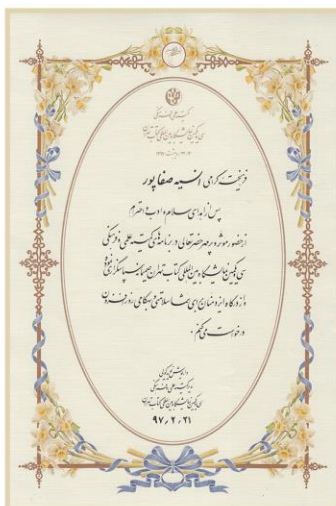 کمیته علمی و فرهنگی
سی و یکمین نمایشگاه بین المللی کتاب تهران
فرهیخته گرامی انسیه صفاپور
پس از اهدای سلام و ادب و احترام
از حضور موثر و پرمهر حضرتعالی در برنامه های کمیته علمی و فرهنگی
سی و یکمین نمایشگاه بین المللی کتاب تهران صمیمانه سپاسگزاری نموده
و از درگاه ایزد منان برای شما سلامتی و بهکامی روزافزون
درخواست می کنم.
مدیر کمیته علمی و فرهنگی
سی و یکمین نمایشگاه بین المللی کتاب تهران
۹۷،۲،۲۱